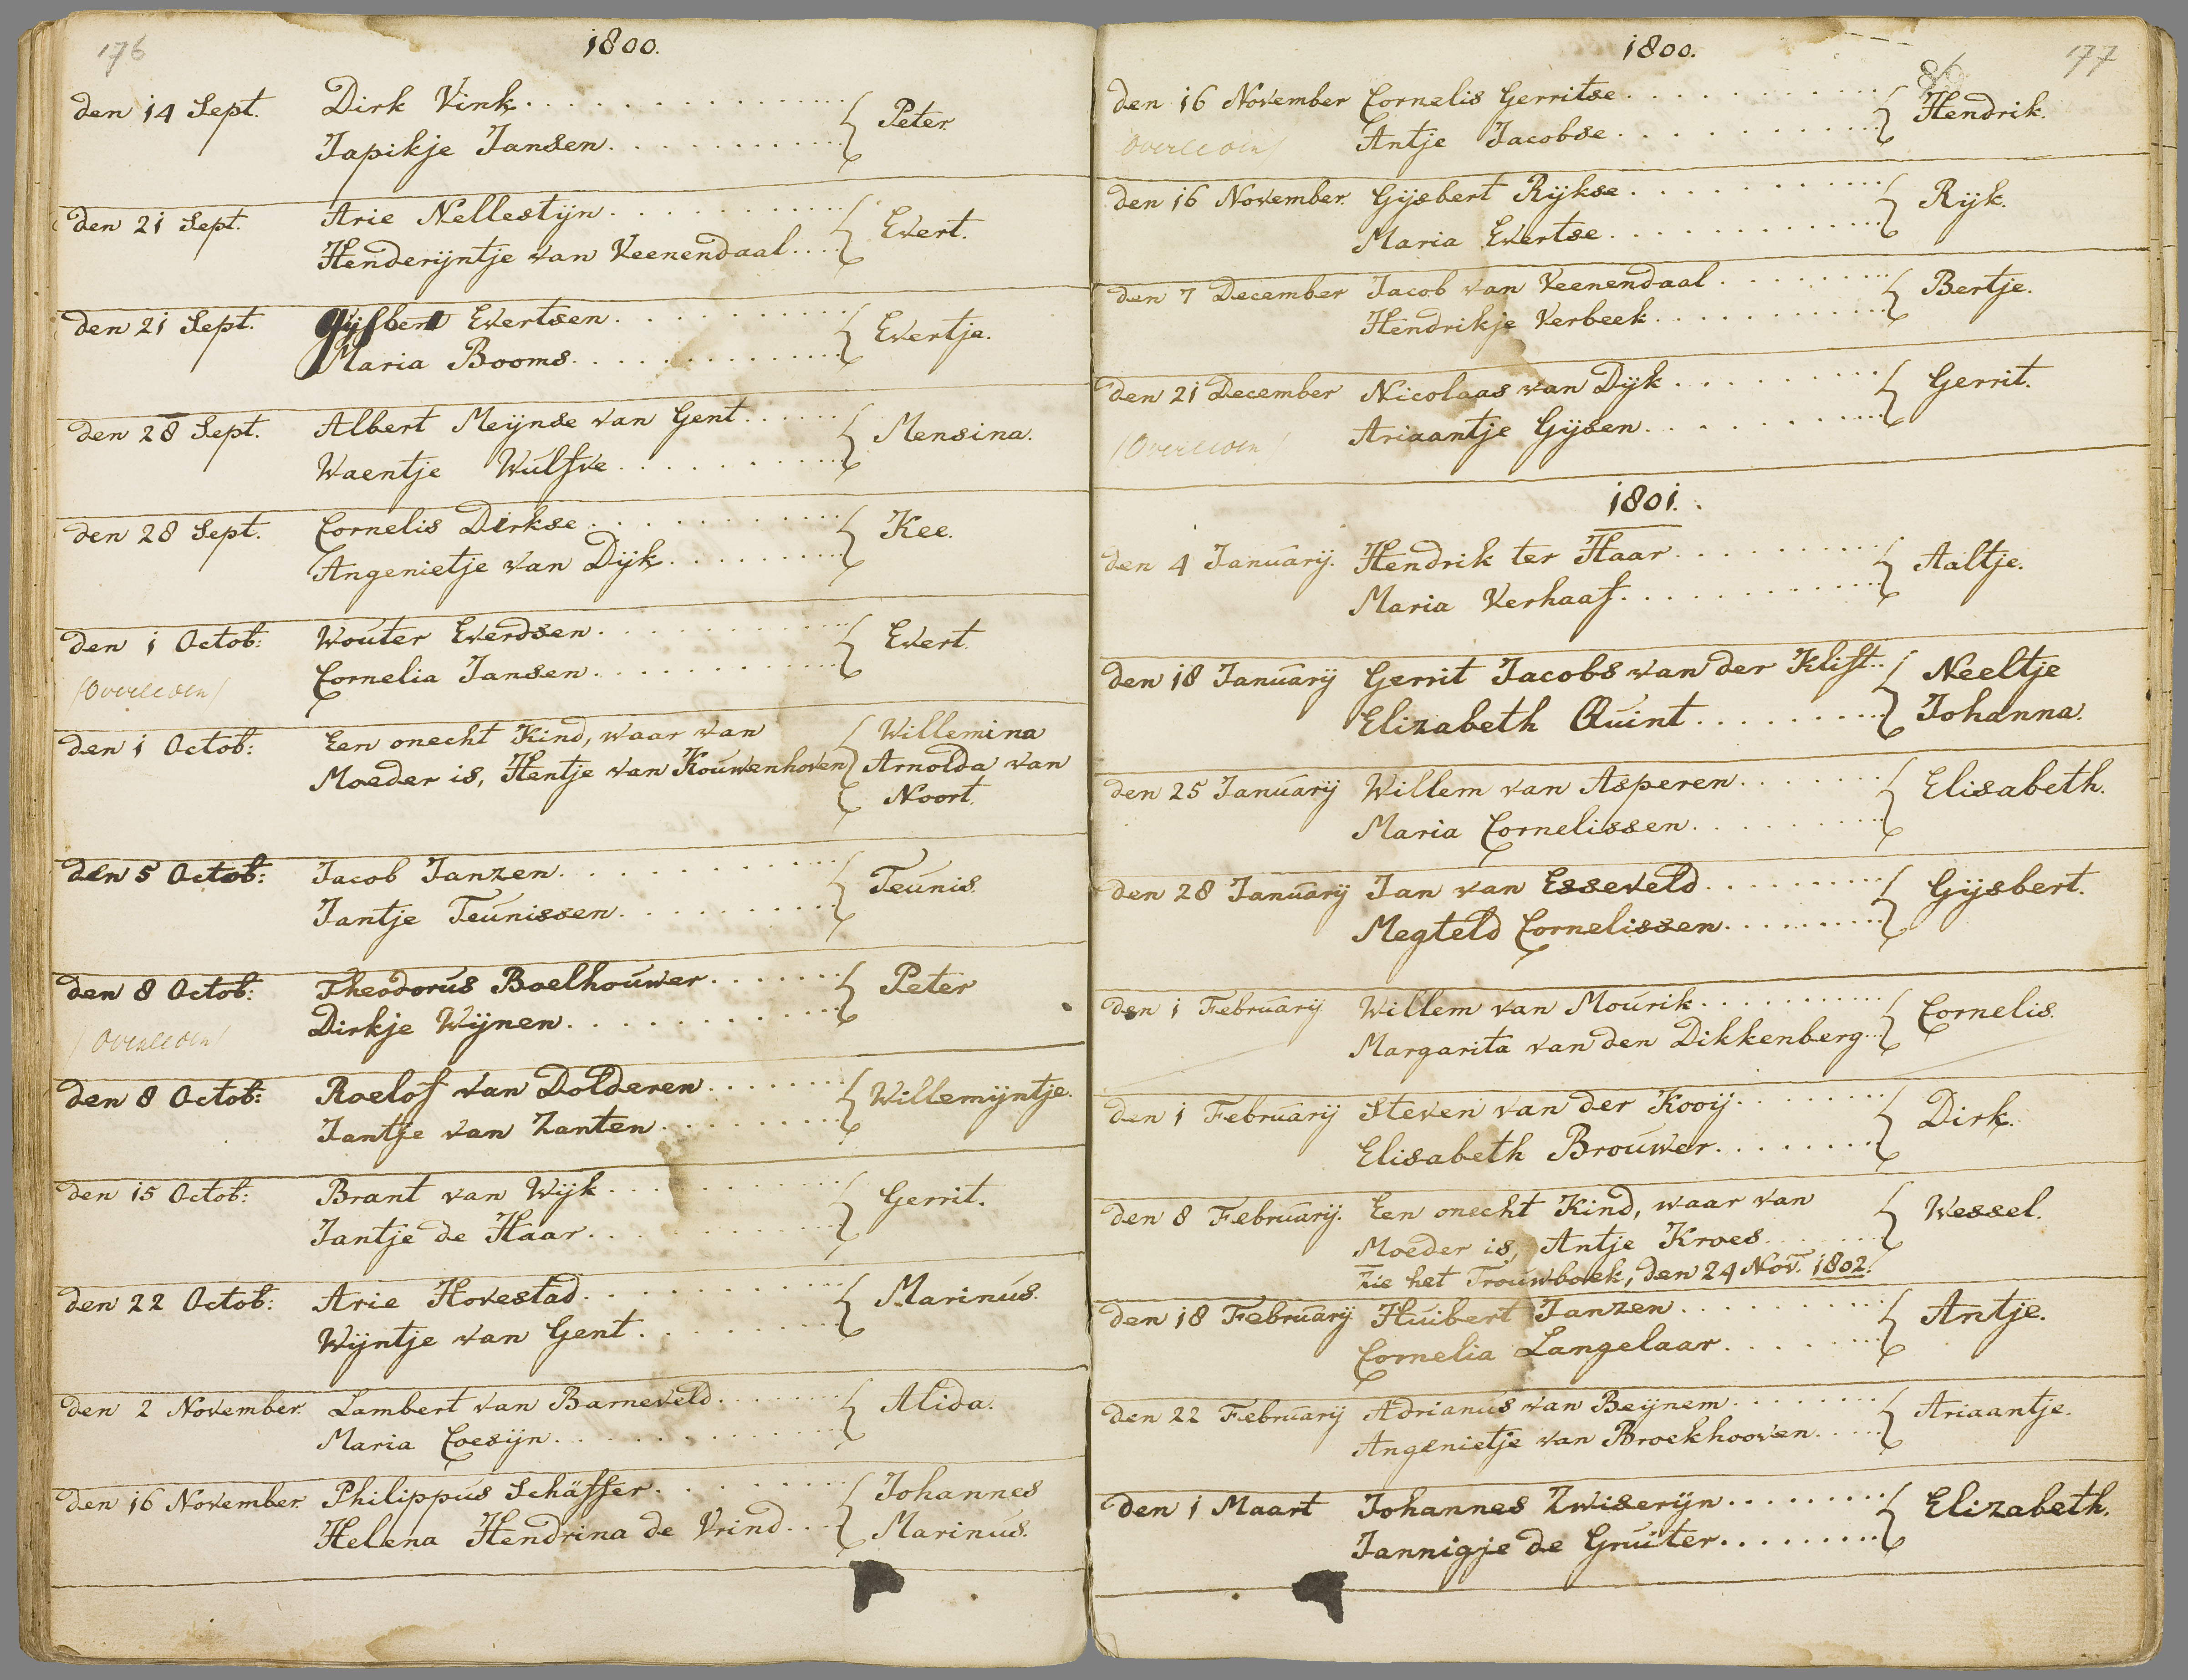 176
1800.
den 14 Sept. Dirk Vink. Peter
Japikje Jansen.
den 21 Sept. Arie Nellestijn. Evert.
Henderijntje van Veenendaal.
den 21 Sept. Gijsbert Evertsen. Evertje.
Maria Booms.
den 28 Sept. Albert Meijnse van Gent. Mensina.
Waentje Wulfve.
den 28 Sept. Cornelis Dirkse. Kee.
Angenietje van Dijk.
den 1 Octob: Wouter Everdsen. Evert.
(Overleden) Cornelia Jansen.
den 1 Octob: Een onecht Kind, waar van Willemina
Moeder is, Hentje van Kouwenhoven Arnolda van
Noort.
den 5 Octob: Jacob Janzen. Teunis.
Jantje Teunissen.
den 8 Octob: Theodorus Boelhouwer. Peter
(Overleden) Dirkje Wijnen.
den 8 Octob: Roelof van Dolderen. Willemijntje.
Jantje van Zanten.
den 15 Octob: Brant van Wijk. Gerrit.
Jantje de Haar.
den 22 Octob: Arie Hovestad. Marinus.
Wijntje van Gent.
den 2 November. Lambert van Barneveld. Alida.
Maria Coesijn.
den 16 November. Philippus Schäffer. Johannes
Helena Hendrina de Vrind. Marinus.
177
1800.
den 16 November Cornelis Gerritse. Hendrik.
Overleden) Antje Jacobse.
den 16 November. Gijsbert Rijkse. Rijk.
Maria Evertse.
den 7 December Jacob van Veenendaal. Bertje.
Hendrikje Verbeek.
den 21 December Nicolaas van Dijk. Gerrit.
(Overleden) Ariaantje Gijsen.
1801.
den 4 Januarij. Hendrik ter Haar. Aaltje.
Maria Verhaaf.
den 18 Januarij Gerrit Jacobs van der Klift. Neeltje
Elizabeth Quint. Johanna.
den 25 Januarij Willem van Asperen. Elisabeth.
Maria Cornelissen.
den 28 Januarij Jan van Esseveld. Gijsbert.
Megteld Cornelissen.
den 1 Februarij Willem van Mourik. Cornelis.
Margarita van den Dikkenberg.
den 1 Februarij Steven van der Kooij. Dirk.
Elisabeth Brouwer.
den 8 Februarij. Een onecht Kind, waar van Wessel.
Moeder is, Antje Kroes.
Zie het Trouwboek, den 24 Nov. 1802.
den 18 Februarij Huibert Janzen. Antje.
Cornelia Langelaar.
den 22 Februarij Adrianus van Beijnem. Ariaantje.
Angenietje van Broekhooven.
den 1 Maart Johannes Zwiserijn. Elizabeth.
Jannigje de Gruiter.